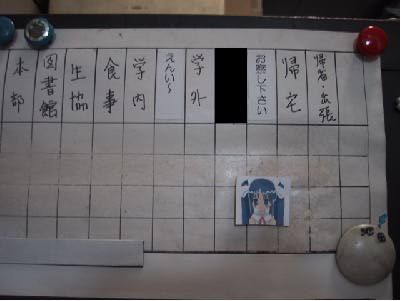 帰省・出張
帰宅
お察し下さい
学外
えんい〜
学内
食事
生協
図書館
本部